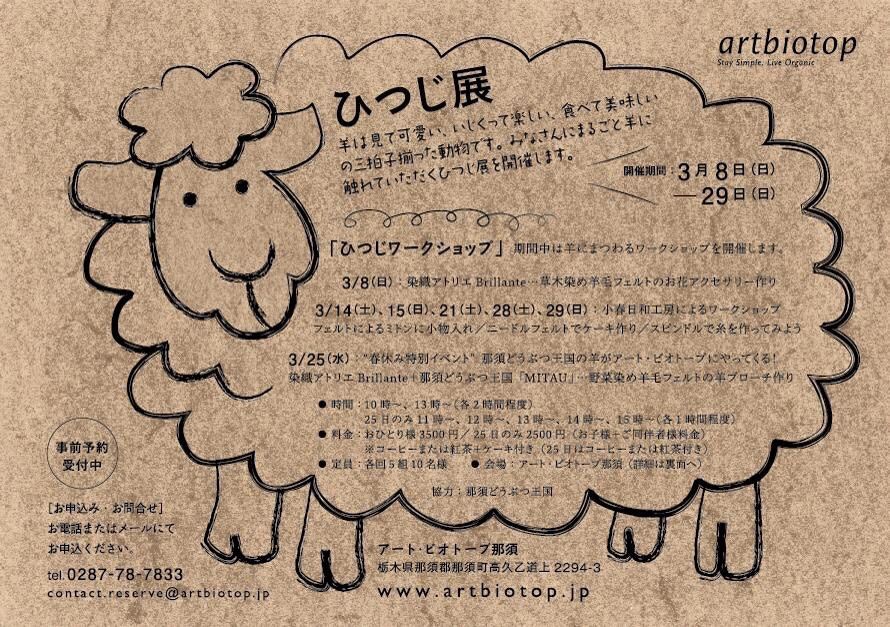 artbiotop
Stay Simple. Live Organic
ひつじ展
羊は見て可愛い、いじくって楽しい、食べて美味しい
の三拍子揃った動物です。みなさんにまるごと羊に
触れていただくひつじ展を開催します。
開催期間：3月8日（日）
―29日（日）
「ひつじワークショップ」期間中は羊にまつわるワークショップを開催します。
3/8（日）：染織アトリエ Brillante…草木染め羊毛フェルトのお花アクセサリー作り
3/14（土）、15（日）、21（土）、28（土）、29（日）：小春日和工房によるワークショップ
フェルトによるミトンに小物入れ／ニードルフェルトでケーキ作り／スピンドルで糸を作ってみよう
3/25（水）："春休み特別イベント" 那須どうぶつ王国の羊がアート・ビオトープにやってくる！
染織アトリエ Brillante＋那須どうぶつ王国「MITAU」…野菜染め羊毛フェルトの羊ブローチ作り
● 時間：10時～、13時～（各2時間程度）
25日のみ11時～、12時～、13時～、14時～、15時～（各1時間程度）
● 料金：おひとり様3500円／25日のみ2500円（お子様＋ご同伴者様料金）
※コーヒーまたは紅茶＋ケーキ付き（25日はコーヒーまたは紅茶付き）
● 定員：各回5組10名様　● 会場：アート・ビオトープ那須（詳細は裏面へ）
協力：那須どうぶつ王国
事前予約
受付中
［お申込み・お問合せ］
お電話またはメールにて
お申込ください。
tel.0287-78-7833
contact.reserve@artbiotop.jp
アート・ビオトープ那須
栃木県那須郡那須町高久乙道上 2294-3
www.artbiotop.jp